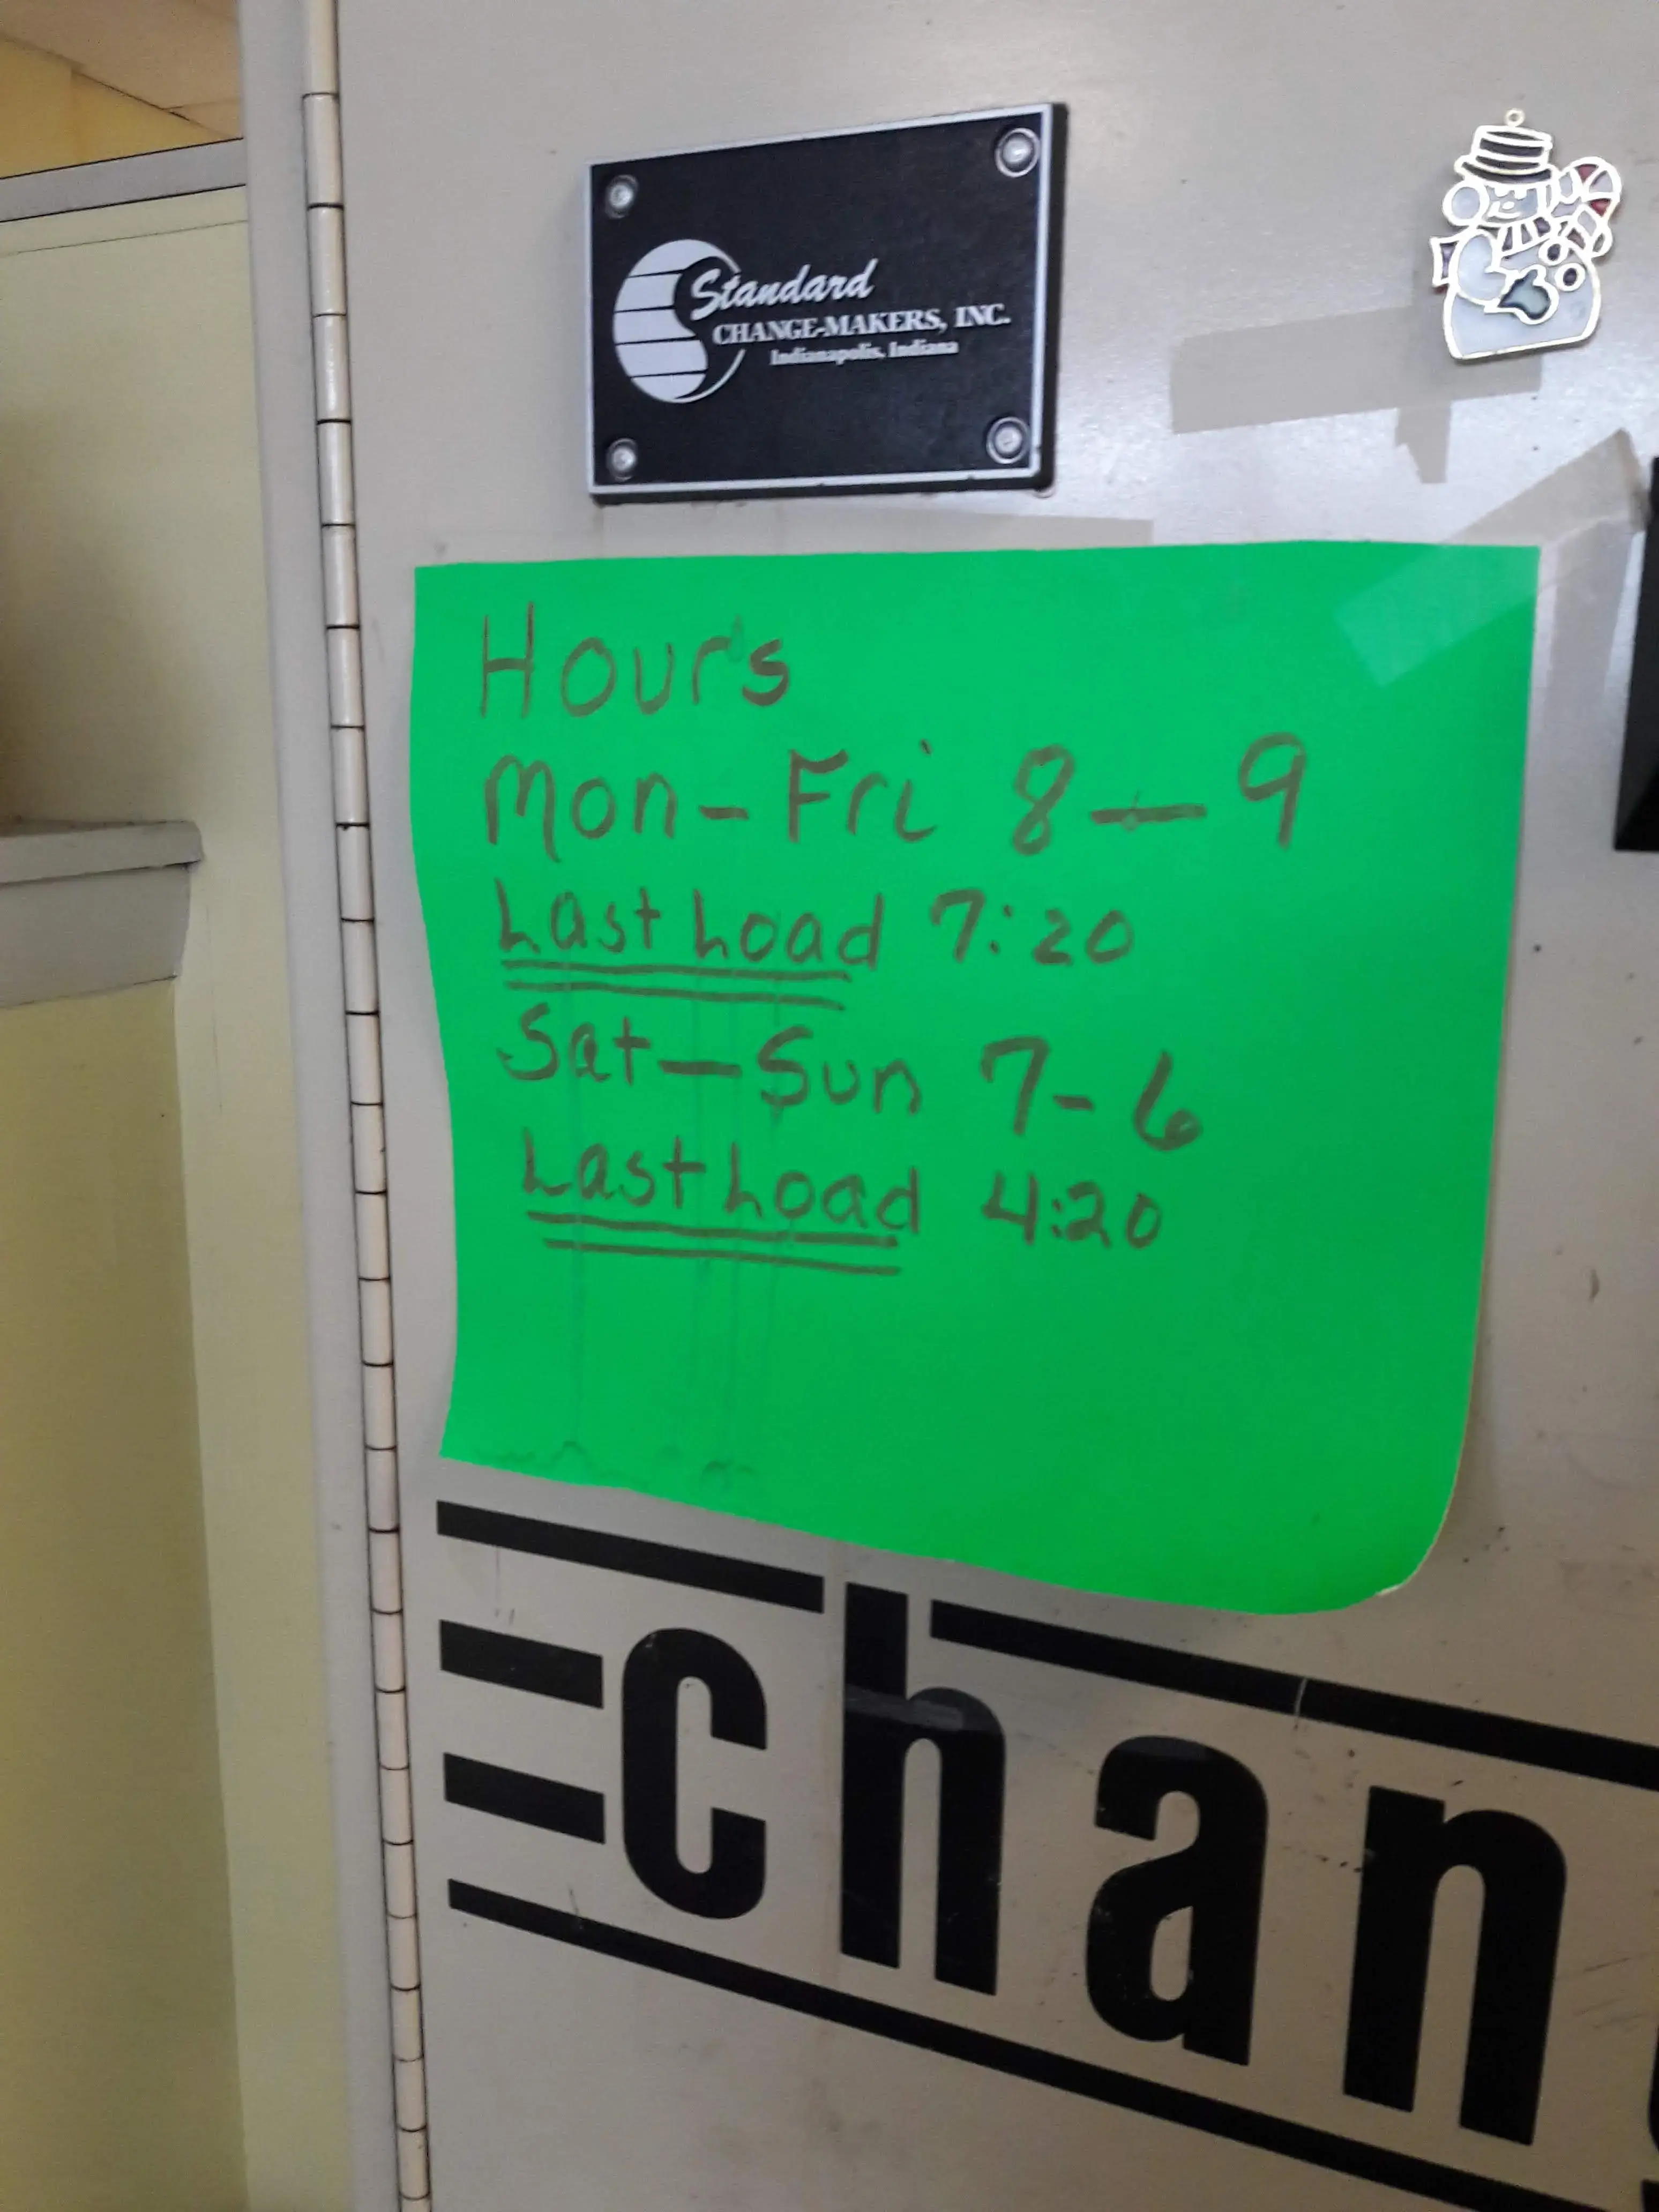 Standard
CHANGE-MAKERS, INC.
Indianapolis, Indiana
Hours
Mon-Fri 8-9
Last Load 7:20
Sat-Sun 7-6
Last Load 4:20
Chan